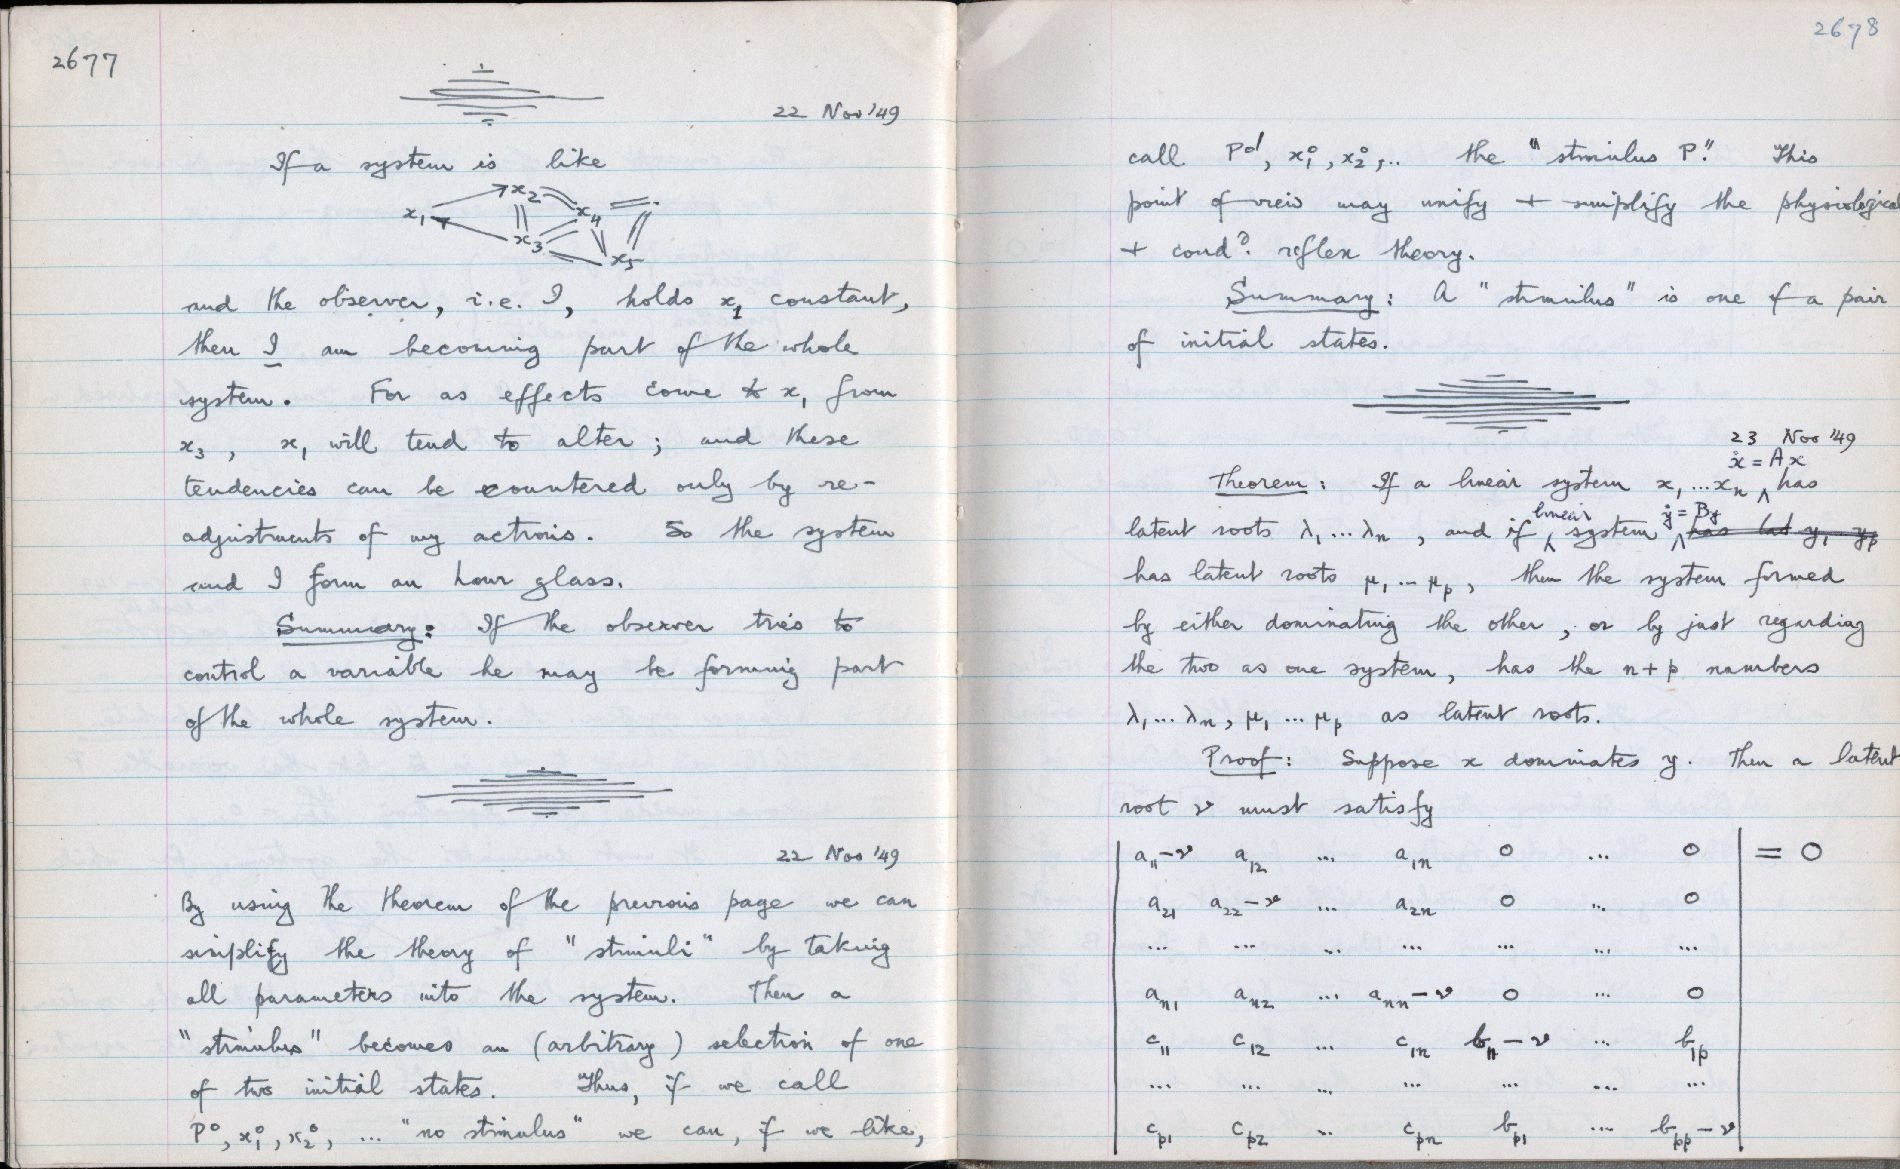 2677
22 Nov '49
If a system is like
x₂
x₁ x₄
x₃
x₅
and the observer, i.e. I, holds x₁ constant,
then I am becoming part of the whole
system. For as effects come to x₁ from
x₃, x₁ will tend to alter; and these
tendencies can be countered only by re-
adjustments of my actions. So the system
and I form an hour glass.
Summary: If the observer tries to
control a variable he may be forming part
of the whole system.
22 Nov '49
By using the theorem of the previous page we can
simplify the theory of "stimuli" by taking
all parameters into the system. Then a
"stimulus" becomes an (arbitrary) selection of one
of two initial states. Thus, if we call
P⁰, x₁⁰, x₂⁰, ... "no stimulus" we can, if we like,
2678
call P⁰¹, x₁⁰, x₂⁰, .. the "stimulus P." This
point of view may unify + simplify the physiological
+ cond⁠ᵈ. reflex theory.
Summary: A "stimulus" is one of a pair
of initial states.
23 Nov '49
ẋ = Ax
Theorem: If a linear system x₁ ... xₙ ∧ has
linear ẏ = By
latent roots λ₁ ... λₙ, and if ∧ system ∧ has lat y₁ yₚ
has latent roots μ₁ ... μₚ, then the system formed
by either dominating the other, or by just regarding
the two as one system, has the n+p numbers
λ₁ ... λₙ, μ₁ ... μₚ as latent roots.
Proof: Suppose x dominates y. Then a latent
root ν must satisfy
a₁₁-ν a₁₂ ... a₁ₙ 0 ... 0 = 0
a₂₁ a₂₂-ν ... a₂ₙ 0 ... 0
... ... ... ... ... ... ...
aₙ₁ aₙ₂ ... aₙₙ-ν 0 ... 0
c₁₁ c₁₂ ... c₁ₙ b₁₁-ν ... b₁ₚ
... ... ... ... ... ... ...
cₚ₁ cₚ₂ ... cₚₙ bₚ₁ ... bₚₚ-ν